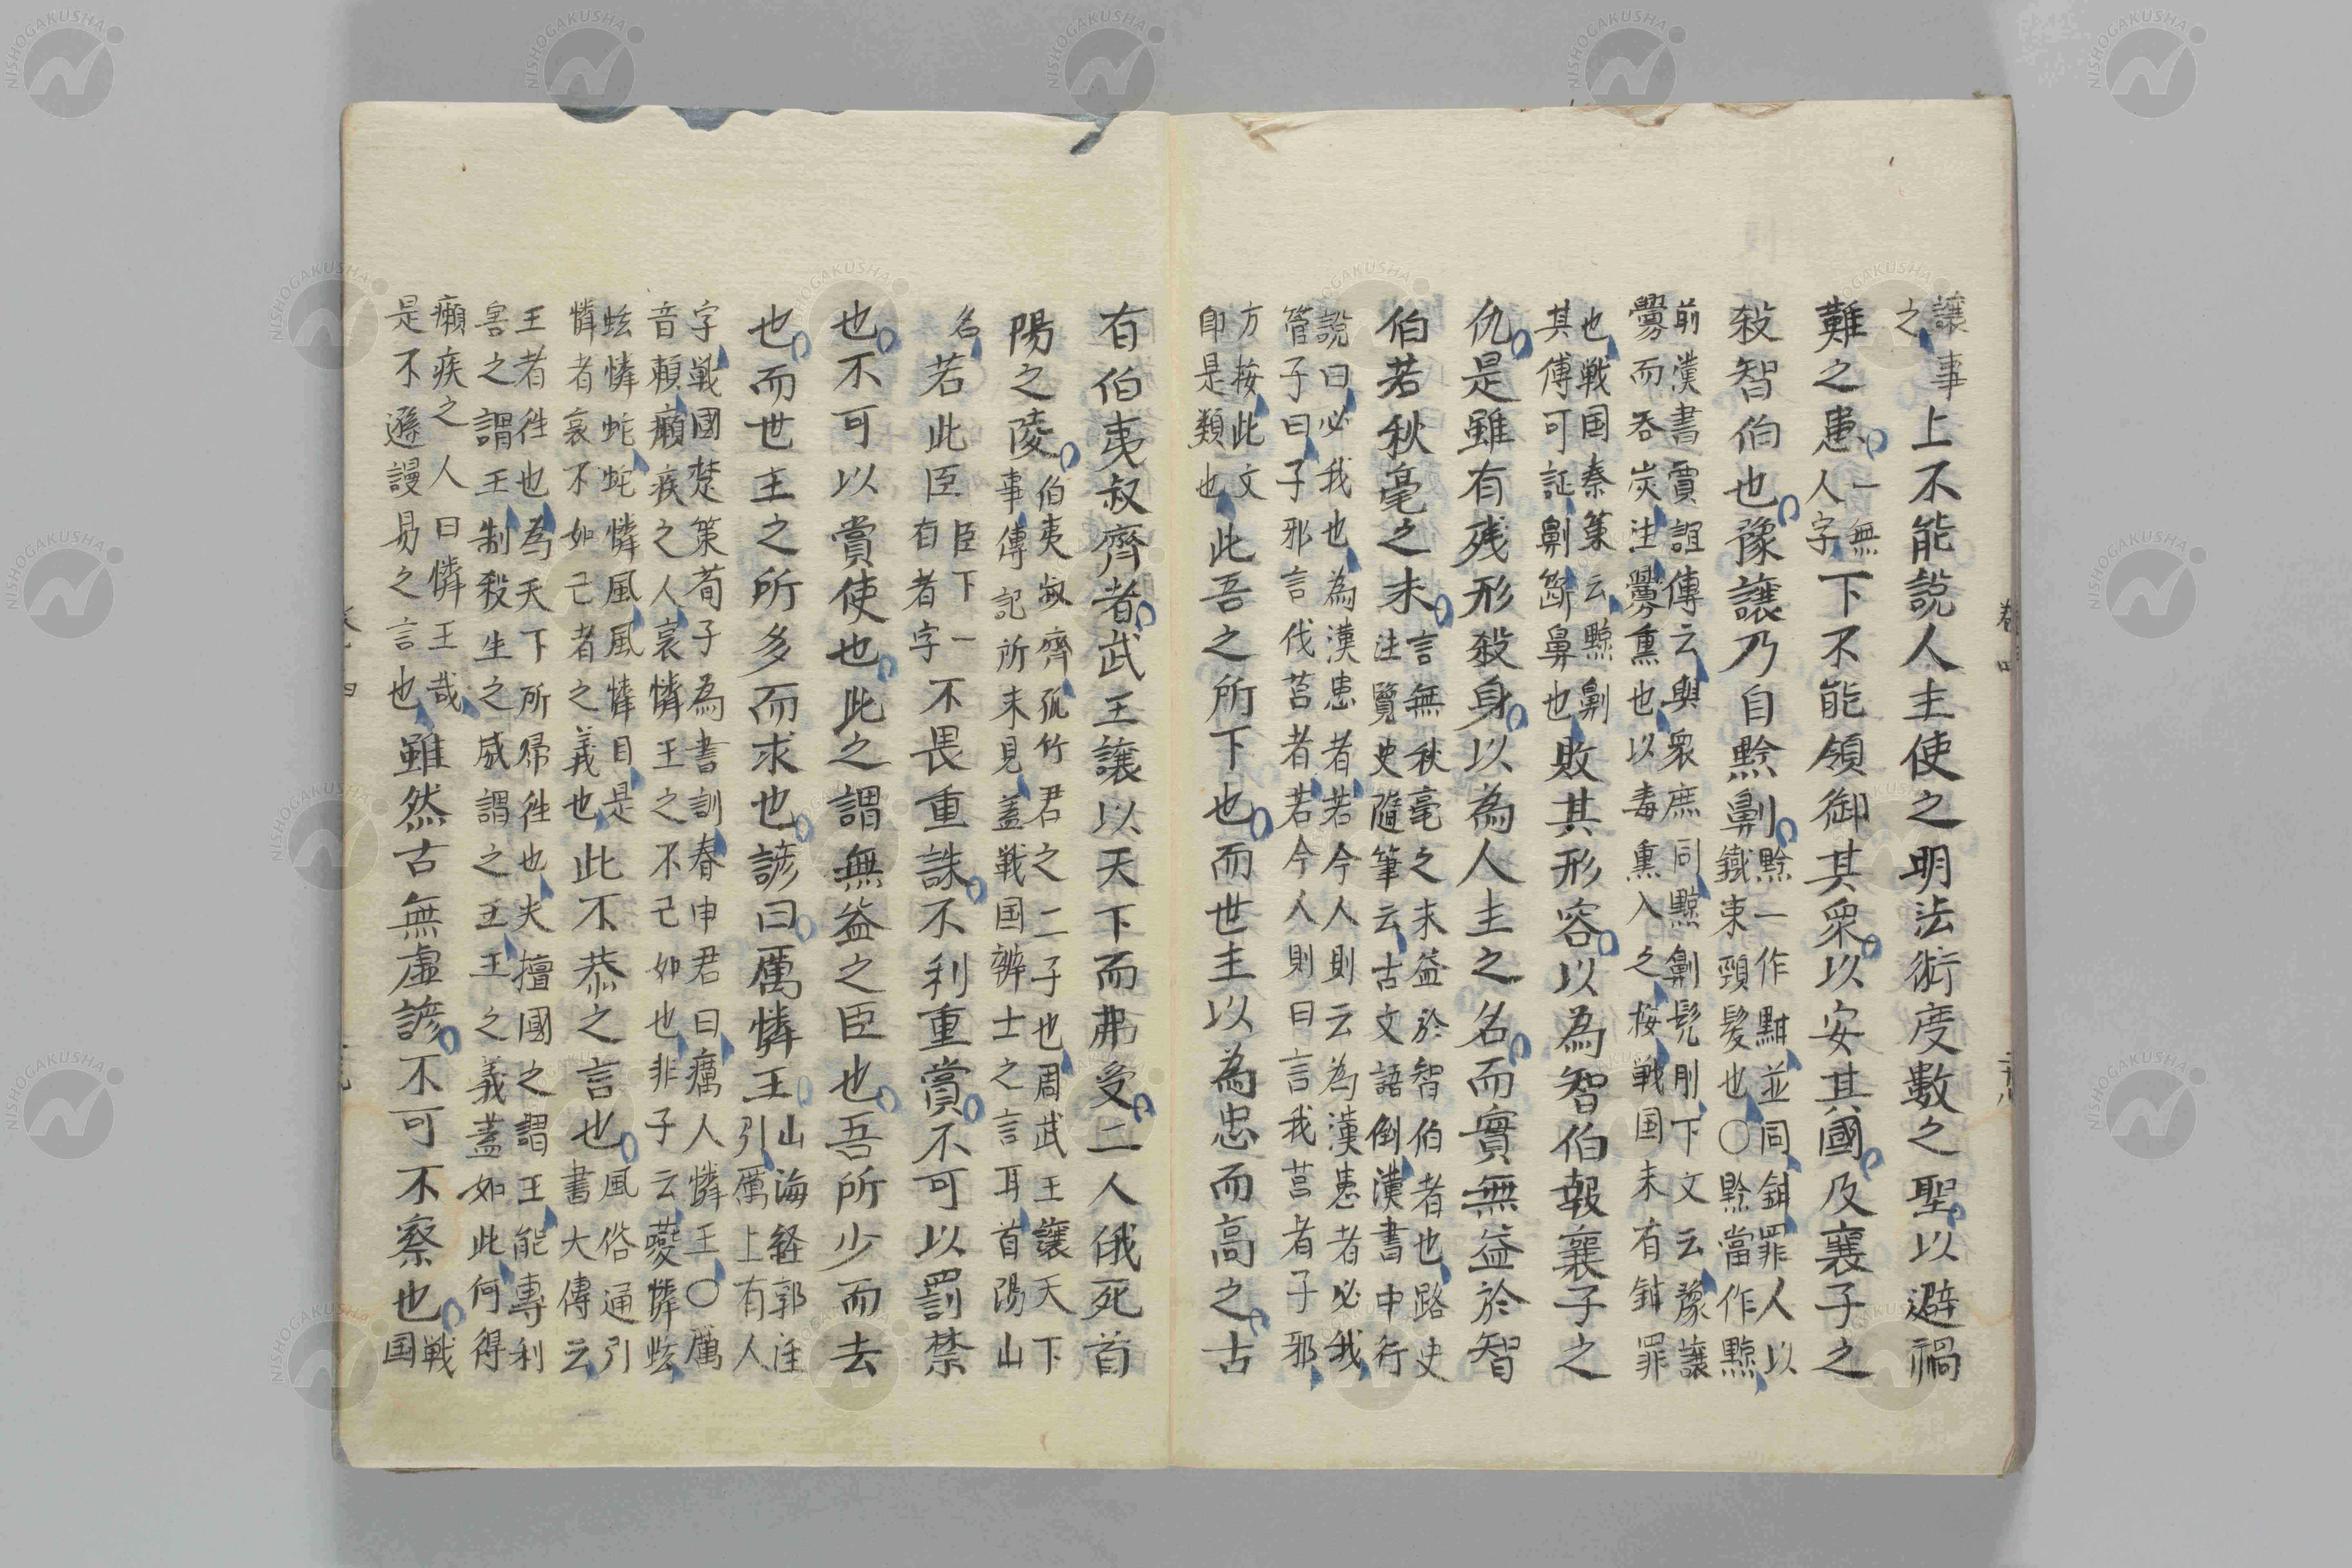 譲事之上不能說人主使之明法術度數之聖以避禍
難之患一無人字下不能領御其衆以安其國及襄子之
殺智伯也豫譲乃自黔劓黔一作黚並同鉗罪人以
鐵束頸髪也○黔當作黥
前漢書賈誼傳云與衆庶同黥劓髡刖下文云豫譲
釁而吞炭注釁熏也以毒熏入之桉戦国未有鉗罪
也戦国秦策云黥劓
其傅可証劓斷鼻也敗其形容以為智伯報襄子之
仇是雖有残形殺身以為人主之名而實無益於智
伯若秋毫之末言無秋毫之末益於智伯者也路史
注覽史隨筆云古文語倒漢書中行
說曰必我也為漢患者若今人則云為漢患者必我
管子曰子邪言伐莒者若今人則曰言我莒者子邪
方桉此文
即是類也此吾之所下也而世主以為忠而高之古
有伯夷叔齊者武王譲以天下而弗受二人俄死首
陽之陵伯夷叔齊孤竹君之二子也周武王譲天下
事傳記所未見蓋戦国辨士之言耳首陽山
名若此臣臣下一有者字不畏重誅不利重賞不可以罰禁
也不可以賞使也此之謂無益之臣也吾所少而去
也而世主之所多而求也諺曰厲憐王山海経郭注
引厲上有人
字戦國楚策荀子為書訓春申君曰癘人憐王○厲
音頼癩疾之人哀憐王之不己如也非子云夔憐蚿
蚿憐蛇蛇憐風風憐目是
憐者哀不如己者之義也此不恭之言也風俗通引
書大傳云
王者徃也為天下所帰徃也夫擅國之謂王能專利
害之謂王制殺生之威謂之王王之義蓋如此何得
癩疾之人曰憐王哉
是不遜謾易之言也雖然古無虚諺不可不察也戦
国
NISHOGAKUSHA